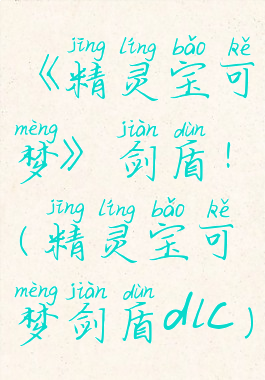 jīng líng bǎo kě
《精灵宝可
mèng jiàn dùn
梦》 剑盾！
jīng líng bǎo kě
(精灵宝可
mèng jiàn dùn
梦剑盾dlc)